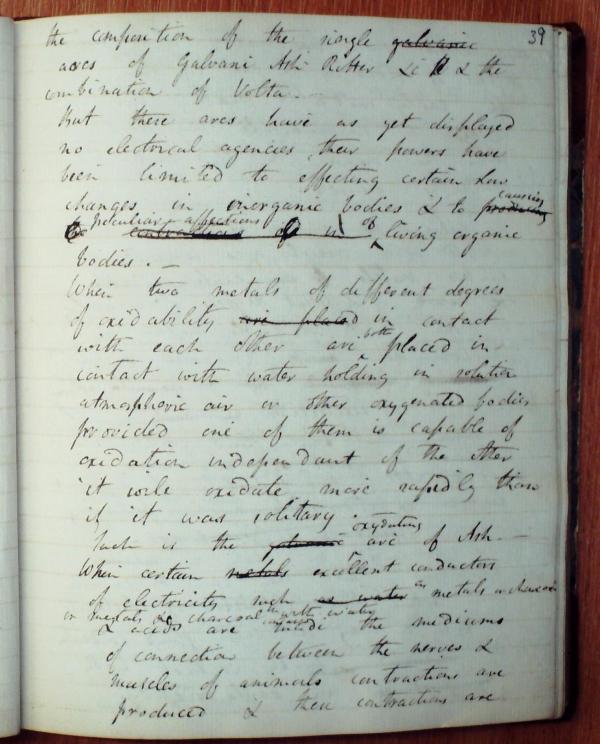 39
the composition of the single galvanic
arcs of Galvani Ash Ritter &c & the
combination of Volta.
But these arcs have as yet displayed
no electrical agencies, their powers have
been limited to effecting certain slow
changes in inorganic bodies & to producing causing
peculiar affections contractions of in of living organic
bodies. —
When two metals of different degrees
of oxidability are placed in contact
with each other are both placed in
contact with water holding in solution
atmospheric air or other oxygenated bodies
provided one of them is capable of
oxidation independant of the other
it will oxidate more rapidly than
if it was solitary.
Such is the galvanic oxydating arc of Ash. —
When certain metals excellent conductors
of electricity such as water as metals or charcoal
or metals & charcoal in contact with water
& acids are made the mediums
of connection between the nerves &
muscles of animals contractions are
produced & these contractions are